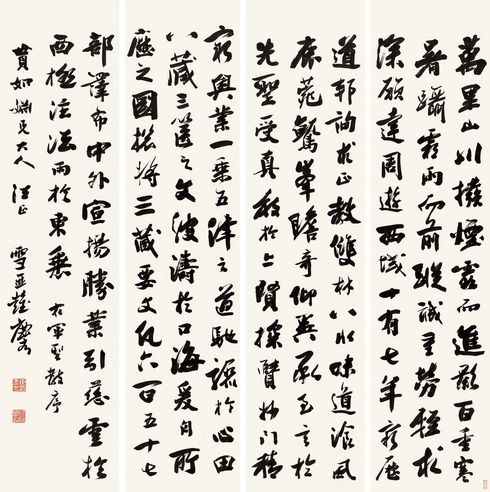 萬里山川撥煙霞而進影百重寒
暑躡霜雨而前蹤誠重勞輕求
深願達周遊西域十有七年窮歷
道邦詢求正教雙林八水味道飡風
鹿菀鷲峯瞻奇仰異承至言於
先聖受真教於上賢探賾妙門精
窮奧業一乘五律之道馳驟於心田
八藏三篋之文波濤於口海爰自所
歷之國揔將三藏要文凡六百五十七
部譯布中外宣揚勝業引慈雲於
西極注法雨於東垂 右軍聖教序
貫如姻兄大人 法正 雪亞